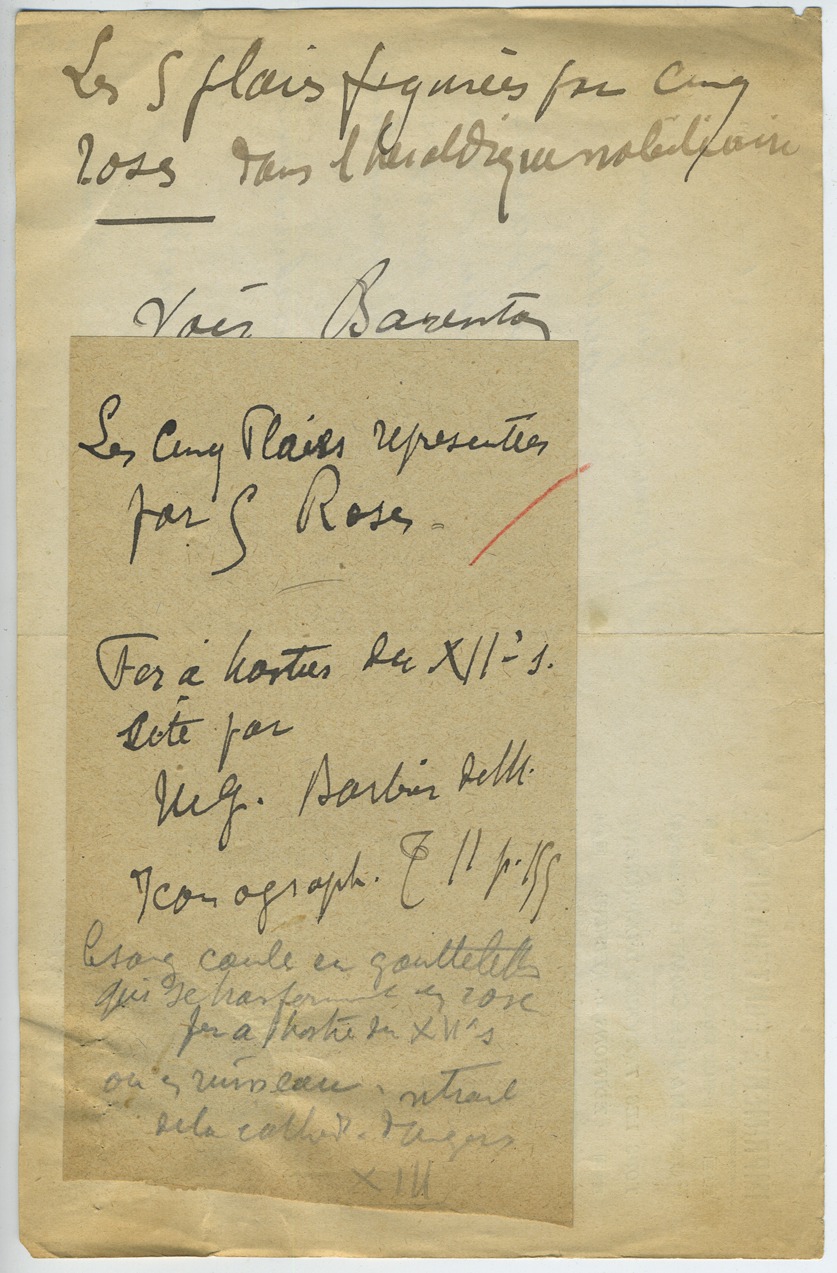 Les 5 plaies figurées par cinq
roses dans l'heraldique nobiliaire
Voir Barenton
Les Cinq Plaies representées
par 5 Roses.
Fer à hosties du XIIe s.
cité par
Mg. Barbier de M.
Iconograph. T II p. 155
le sang coule en gouttelettes
qui se transforment en rose
fer a hostie du XIIe s
ou en ruisseau. vitrail
de la cathed. d'Angers
XIII